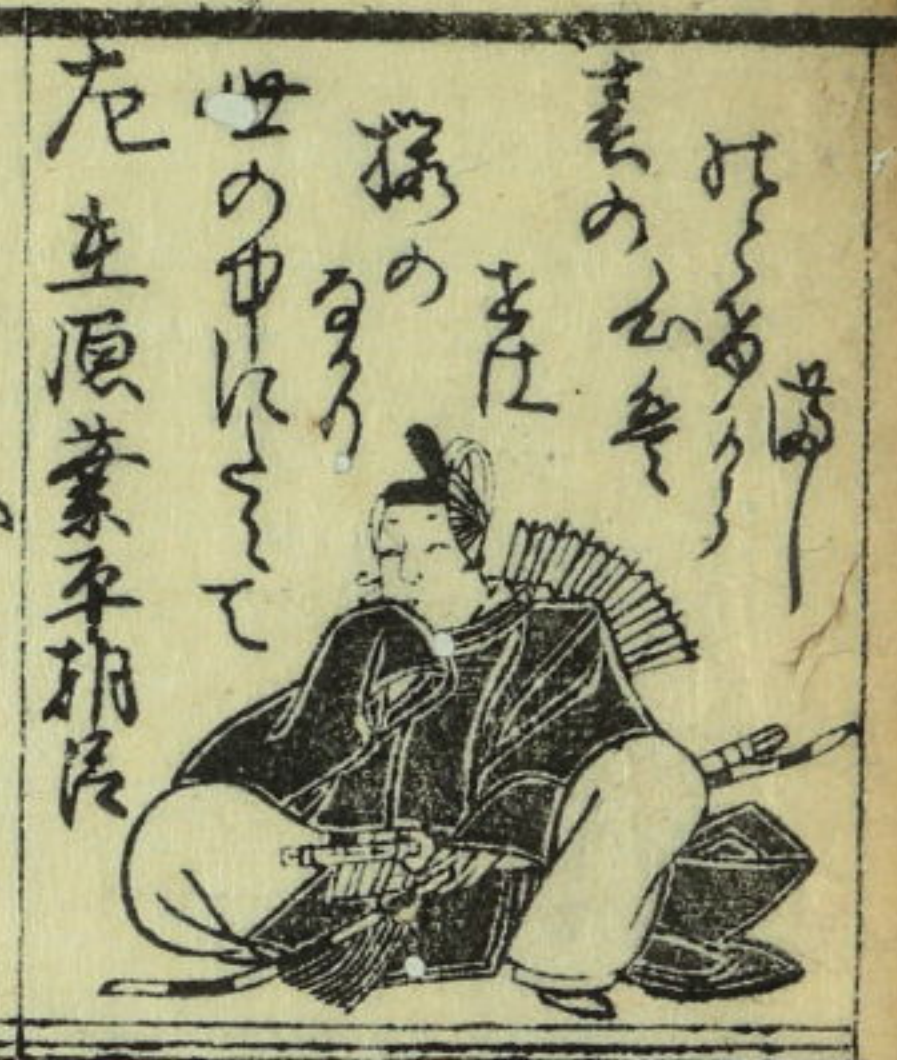 左 在原業平朝臣
世の中にたえて
櫻の
なかり
せは
春の心は
のとけから
まし